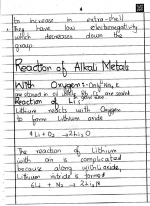 to increase in extra-shell
They have low electronegativity
which decreases down the
group
Reaction of Alkali Metals
With Oxygen:-
are stored in oil
Reaction of Li:
Lithium reacts with Oxygen
to form Lithium oxide
4Li + O₂ → 2Li₂O
The reaction of Lithium
with air is complicated
because along with oxide,
Lithium nitride is formed
6Li + N₂ → 2Li₃N